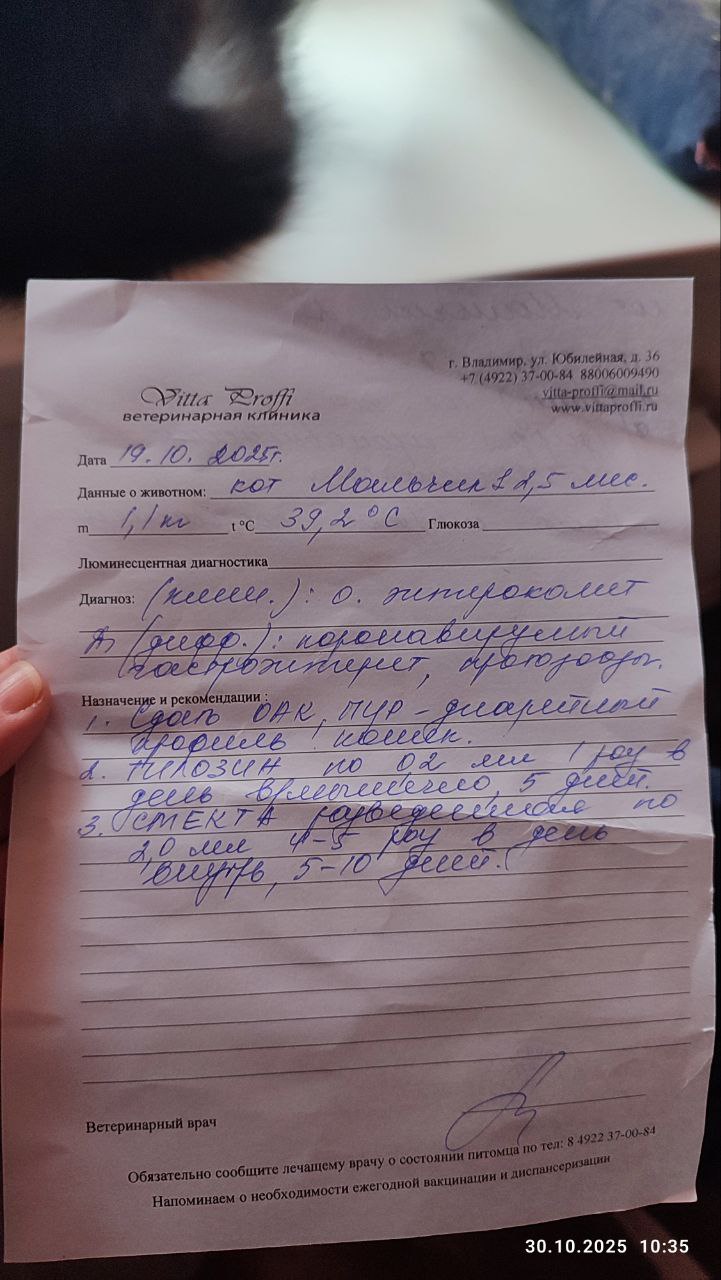 г. Владимир, ул. Юбилейная, д. 36
+7 (4922) 37-00-84 88006009490
vitta-proffi@mail.ru
www.vittaproffi.ru
Vitta Proffi
ветеринарная клиника
Дата 19.10.2025г.
Данные о животном: кот Мальчик 1 2,5 мес.
m 1,1 кг t °C 39,2°C Глюкоза
Люминесцентная диагностика
Диагноз: (клин.): о. энтероколит
(дифф.): коронавирусный
гастроэнтерит, протозоозы.
Назначение и рекомендации :
1. Сдать ОАК, ПЦР-диарейный
профиль кошек.
2. ТИЛОЗИН по 0,2 мл 1 раз в
день внутримышечно, 5 дней.
3. СМЕКТА разведенная по
2,0 мл 4-5 раз в день
внутрь, 5-10 дней.
Ветеринарный врач
Обязательно сообщите лечащему врачу о состоянии питомца по тел: 8 4922 37-00-84
Напоминаем о необходимости ежегодной вакцинации и диспансеризации
30.10.2025 10:35